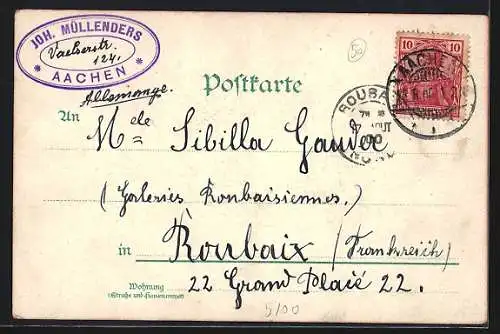 JOH. MÜLLENDERS
Vaelserstr.
124.
* AACHEN *
Allemange.
50
10 10
AACHEN
Postkarte
ROUBAIX
NORD
An Mele Sibilla Gaudee
(Galeries Roubaisiennes)
in Roubaix (Frankreich)
22 Grand Place 22.
Wohnung
(Straße und Hausnummer)
5/00